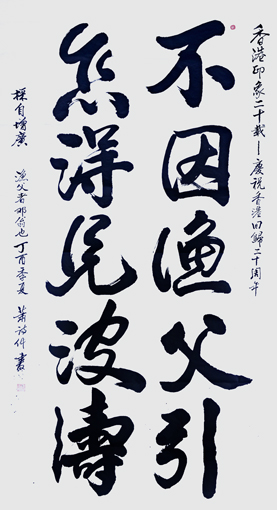 香港印象二十載—慶祝香港回歸二十周年
不因漁父引
怎得見波濤
採自增廣 漁父者那翁也丁酉季夏 蕭 書